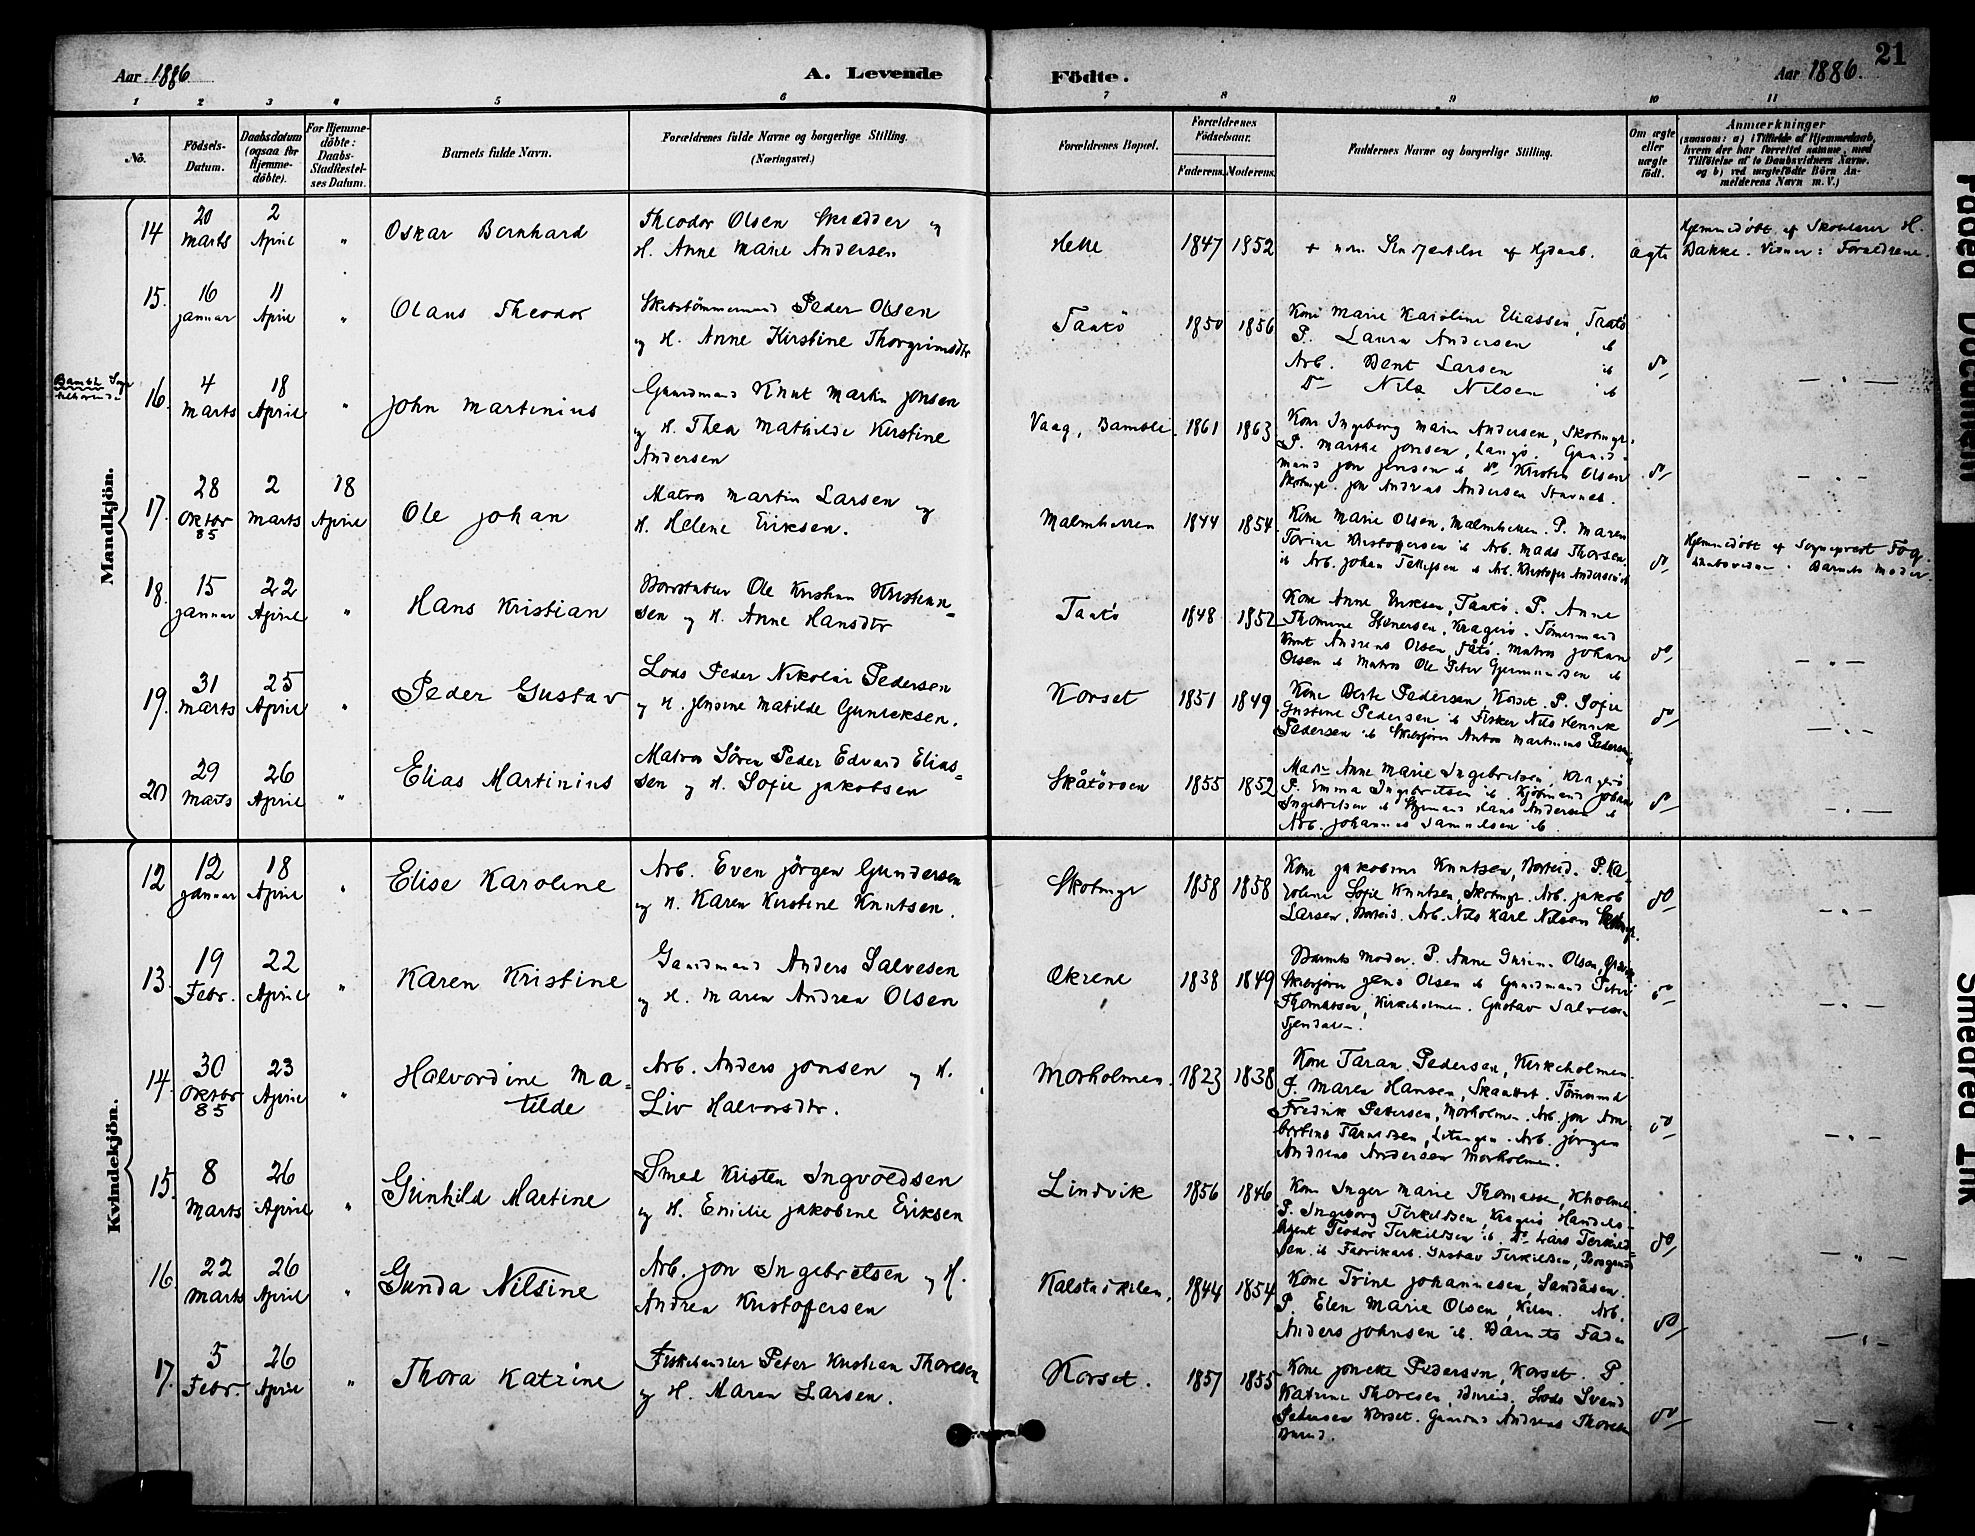 21
Aar 1886 A. Levende Födte. Aar 1886.
1 2 3 4 5 6 7 8 9 10 11
No.
Födsels-Datum.
Daabsdatum (ogsaa for Hjemme-döbte).
For Hjemme-döbte: Daabs-Stadfæstel-ses Datum.
Barnets fulde Navn.
Forældrenes fulde Navne og borgerlige Stilling. (Næringsvei.)
Forældrenes Bopæl.
Forældrenes Födselsaar.
Faderens. Moderens.
Faddernes Navne og borgerlige Stilling.
Om ægte eller uægte född.
Anmærkninger
(saasom: a) i Tilfælde af Hjemmedaab, hvem der har forrettet samme, med Tilföielse af to Daabsvidners Navne. og b) ved uægtefödte Börn An-melderens Navn m. V.)
Mandkjön.
14 20 Marts 2 April " Oskar Bernhard
Theodor Olsen Skrædder og
H. Anne Marie Andersen
Helle 1847 1852
ægte
Hjemmedöbt af Skolelærer H.
Bakke. Vidner: Forældrene.
15. 16 Januar 11 April " Olaus Theodor
Skibstömmermand Peder Olsen
og H. Anne Kirstine Thorgrimsdtr
Taatö 1850 1856
Kone Marie Karoline Eliassen, Taatö
P. Laura Andersen ib
Arb. Bent Larsen ib
Do Nils Nilsen ib
do
Bamble Sogn
16. 4 Marts 18 April " John Martinius
Gaardmand Knut Martin Jonsen
og H. Thea Mathilde Kirstine
Andersen
Vaag, Bamble. 1861 1863
Kone Ingeborg Marie Andersen, Skotmyr.
P. Marthe Jonsen, Langö. Gaard-
mand Jon Jonsen ib do Kristen Olsen
Skotmyr. Jon Andreas Andersen Stavnes.
do
17. 28 Oktbr 85 2 Marts 18 April Ole Johan
Matros Martin Larsen og
H. Helene Eriksen.
Malmhellen 1844 1854
Kone Marie Olsen, Malmhellen. P. Maren
Torine Kristoffersen ib Arb. Mads Thorsen
ib Arb. Johan Tellefsen ib Arb. Kristofer Andersen ib
do
Hjemmedöbt af Sogneprest Fog.
Barnets Moder
18. 15 Januar 22 April " Hans Kristian
Ole Kristian Kristian-
sen og H. Anne Hansdtr
Taatö 1848 1852
Kone Anne Eriksen, Taatö. P. Anne
Thomine Kragerö. Tömmermand
Knut Andreas Olsen, Matros Johan
Olsen ib Matros Ole Peter ib
do
19. 31 Marts 25 April " Peder Gustav
Lods Peder Nikolai Pedersen
og H. Jensine Matilde Gunleksen.
Korset 1851 1849
Kone Berte Pedersen, Korset. P. Sofie
Gustine Pedersen ib Fisker Nils Henrik
Pedersen ib Anton Martinius Pedersen
do
20 29 Marts 26 April " Elias Martinius
Matros Sören Peder Edvard Elias-
sen og H. Sofie Jakobsen
Skåtöroen 1855 1852
Anne Marie Ingebretsen Kragerö
P. Emma Ingebretsen ib Kjöbmand Johan
Ingebretsen ib Styrmand Hans Andersen ib
Arb. Johannes Samuelsen ib.
do
Kvindekjön.
12 12 Januar 18 April " Elise Karoline
Arb. Even Jörgen Gundersen
og H. Karen Kirstine Knutsen.
Skotmyr 1858 1858
Kone Jakobine Knutsen, P. Ka-
roline Sofie Knutsen, Skotmyr. Arb. Jakob
Larsen, Arb. Nils Karl Nilsen
do
13. 19 Febr. 22 April " Karen Kristine
Gaardmand Anders Salvesen
og H. Maren Andrea Olsen
Økrene 1838 1849
Barnets Moder. P. Anne Olsen,
Jens Olsen ib Gaardmand Peter
Thomassen, Kirkeholmen. Gustav Salvesen
do
14. 30 Oktbr 85 23 April " Halvordine Ma-
tilde
Arb. Anders Jonsen og H.
Liv Halvorsdtr.
Morholmen. 1823 1838
Kone Taran Pedersen, Kirkeholmen.
P. Maren Hansen, Tömmermand
Fredrik Petersen, Morholmen. Arb. Jon Am-
bortius Arb. Jörgen
Andreas Andersen Morholmen.
do
15. 8 Marts 26 April " Gunhild Martine
Smed Kristen Ingvoldsen
og H. Emilie Jakobine Eriksen
Lindvik 1856 1846
Kone Inger Marie Thomassen, Kholmen
P. Ingeborg Terkildsen, Kragerö. Handels-
agent Teodor Terkildsen ib. do Lars Terkild-
sen ib Fabrikarb. Gustav Terkildsen, Porsgrund
do
16 22 Marts 26 April " Gunda Nilsine
Arb. Jon Ingebretsen og H.
Andrea Kristofersen
Kalstadkilen, 1844 1854
Kone Trine Johannesen, Sandåsen.
P. Elen Marie Olsen, Kilen. Arb.
Anders Johnsen ib. Barnets Fader
do
17. 5 Febr. 26 April " Thora Katrine
Fiskehandler Peter Kristian Thoresen
og H. Maren Larsen.
Korset. 1857 1855
Kone Joneke Pedersen, Korset. P.
Katrine Thoresen, Lods Svend
Pedersen Korset. Andreas Thoresen
do
Faded Document
Smeared Ink